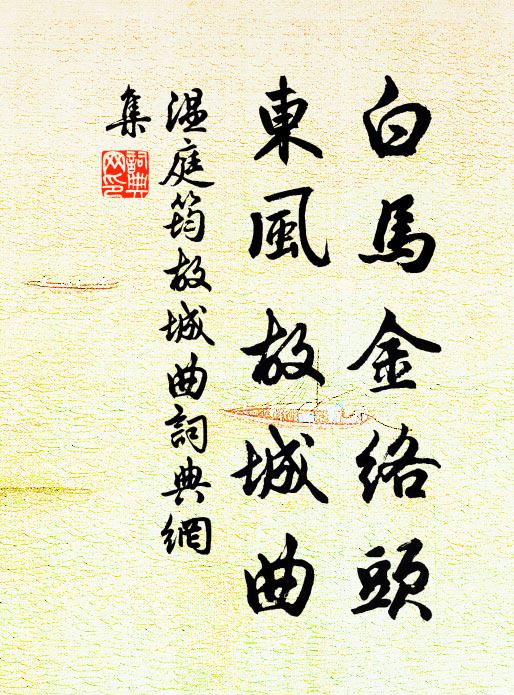 白馬金络頭
東風故城曲
溫庭筠故城曲詞典網
集
詞典
网印